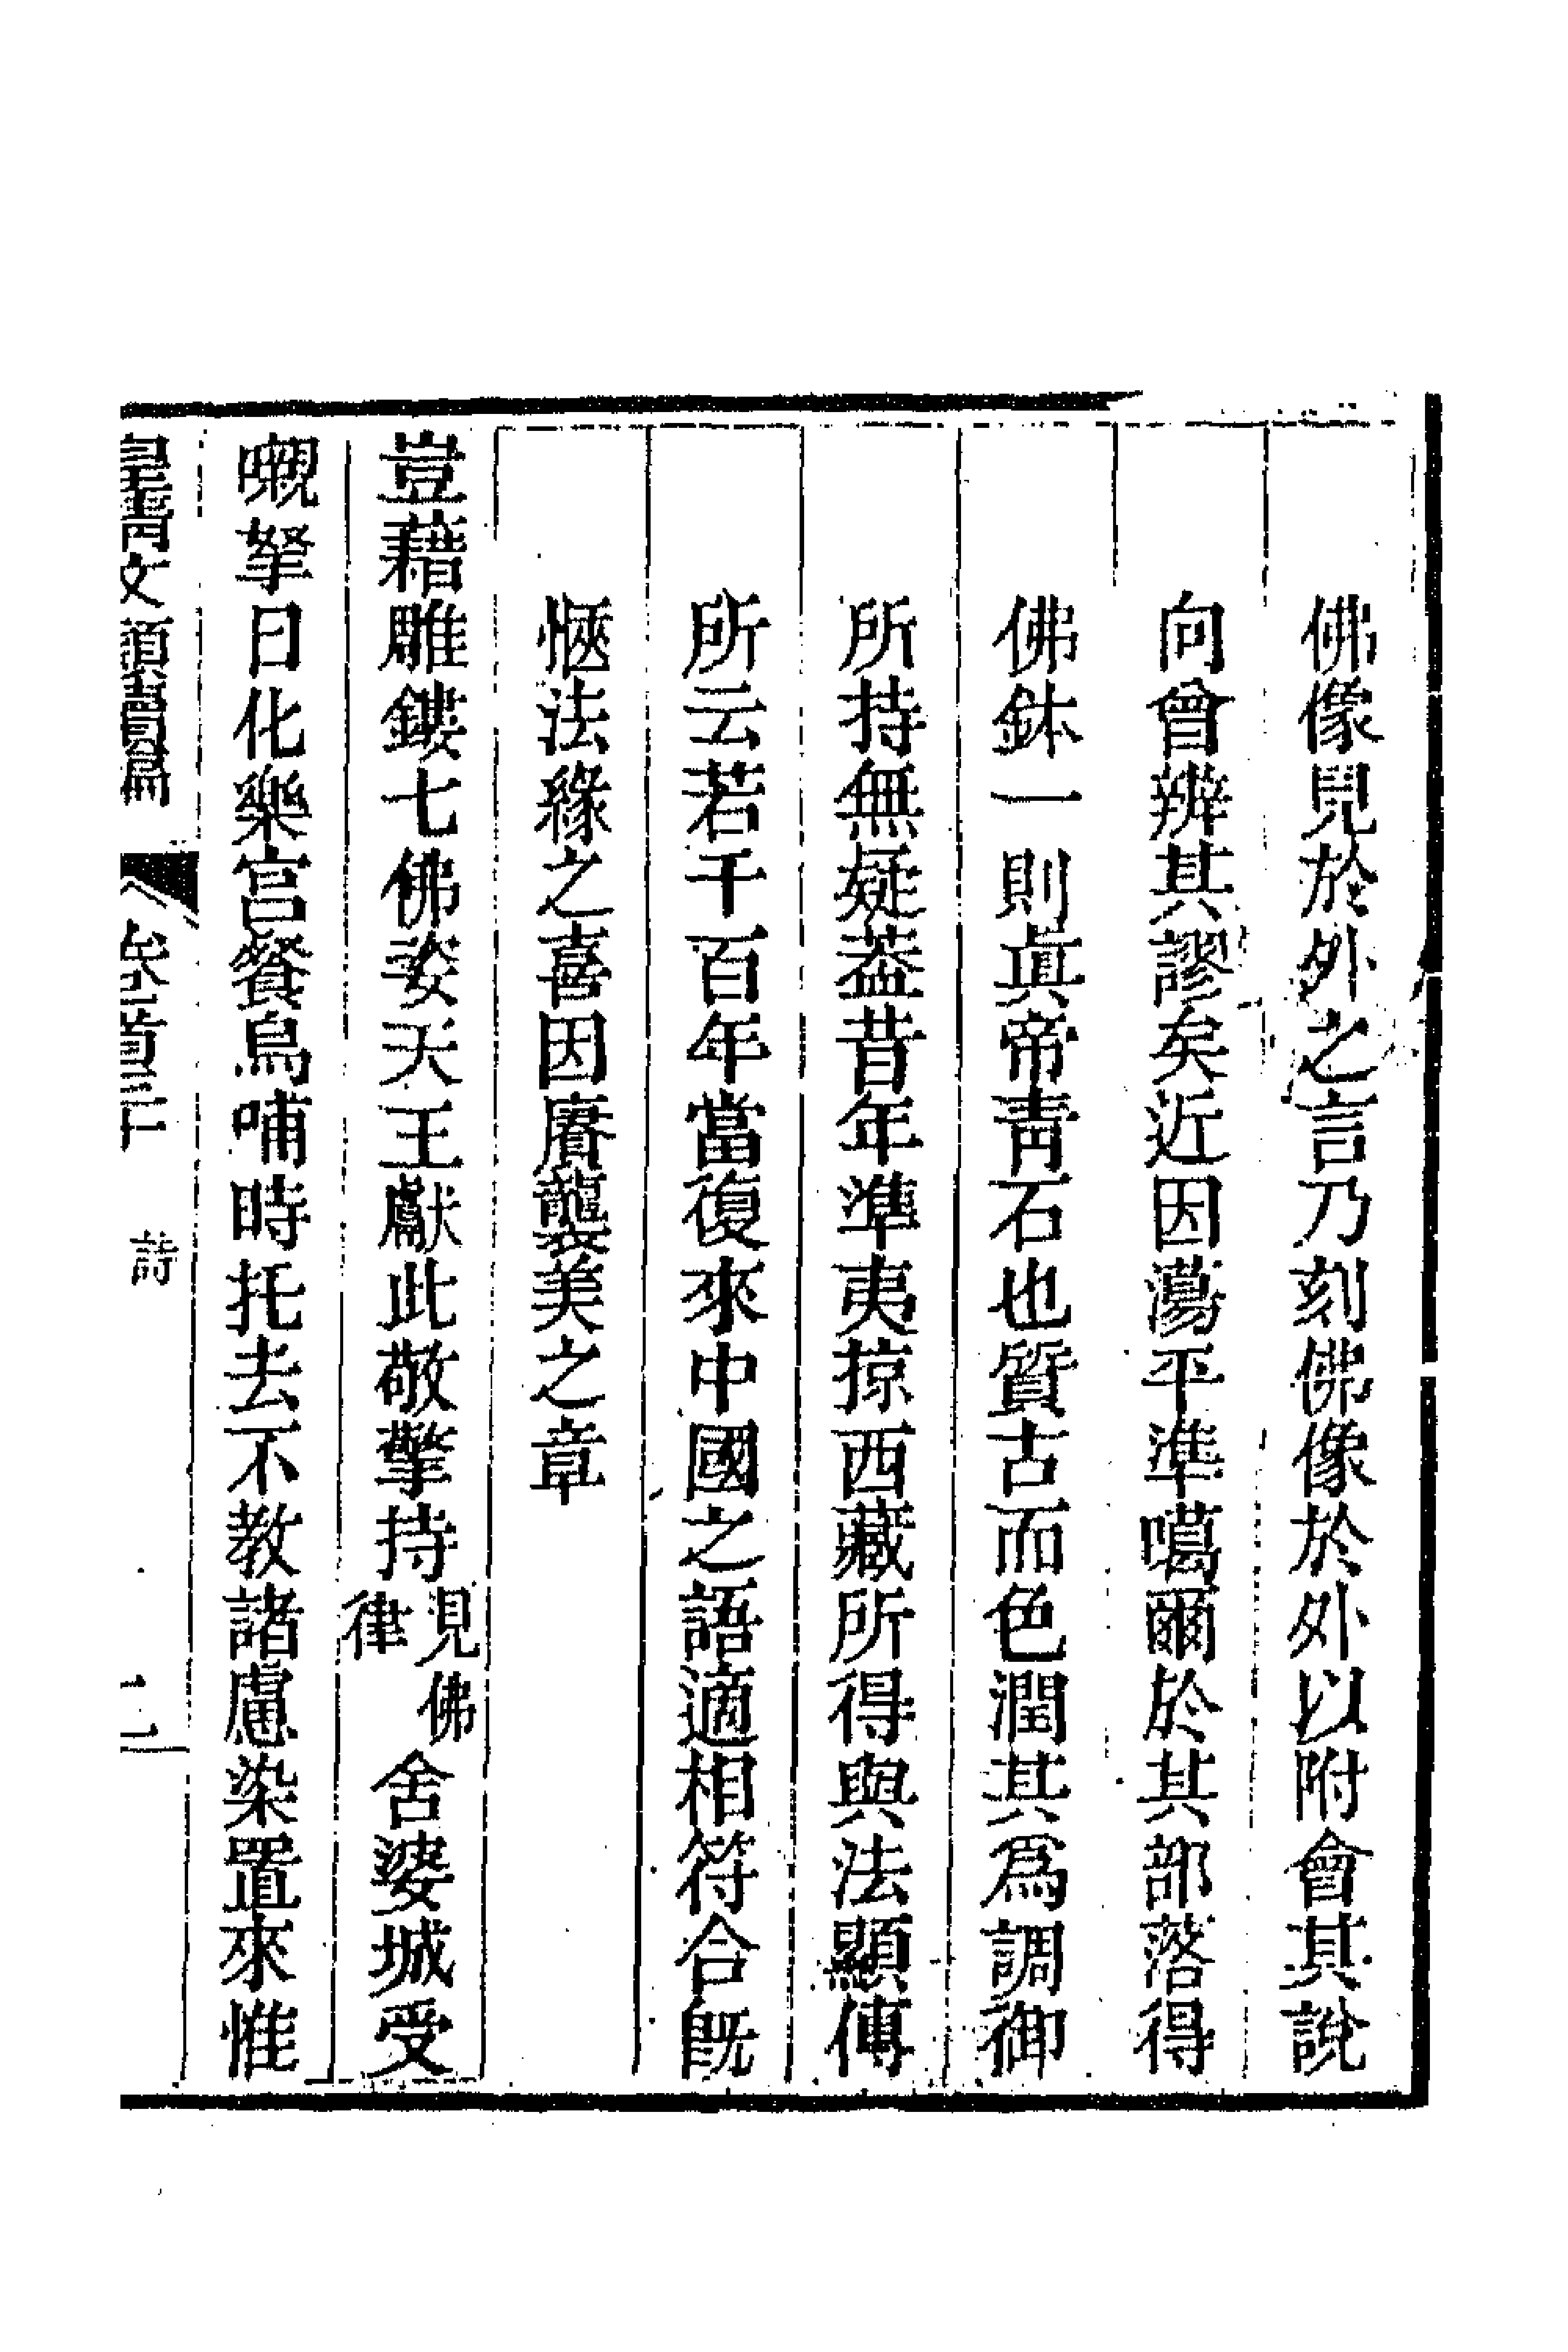 佛像見於外之言乃刻佛像於外以附會其說
向曾辨其謬矣近因蕩平準噶爾於其部落得
佛鉢一則眞帝靑石也質古而色潤其爲調御
所持無疑葢昔年準夷掠西藏所得與法顯傳
所云若干百年當復來中國之語適相符合旣
愜法緣之喜因賡襲美之章
豈藉雕鏤七佛姿天王獻此敬擎持見佛律舍婆城受
嚫拏日化樂宮餐鳥哺時托去不教諸慮染置來惟
皇淸文頴續篇 卷首三十 詩 二